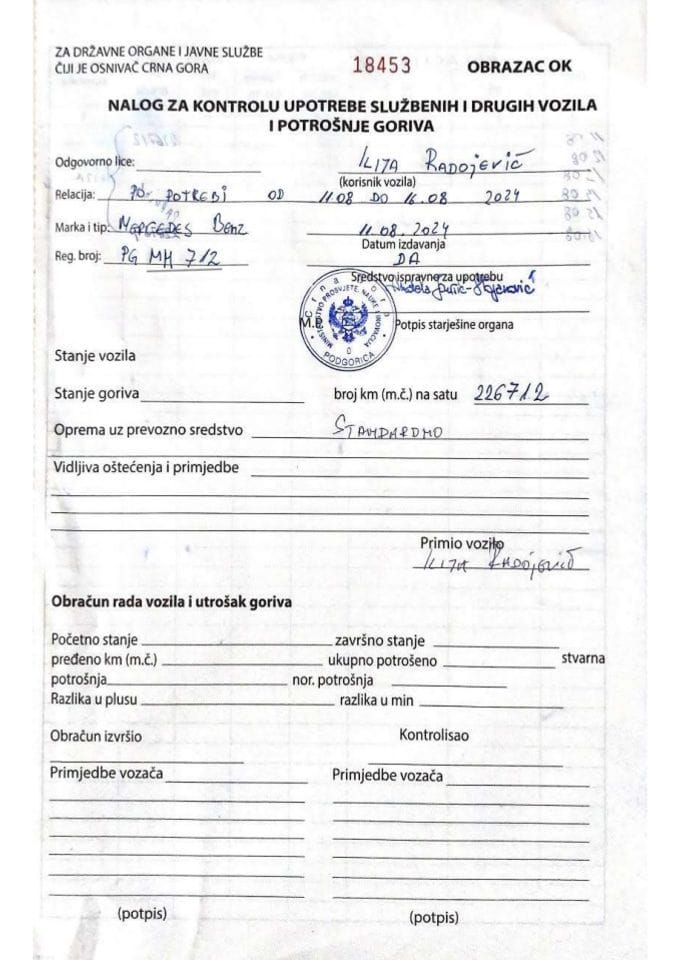 ZA DRŽAVNE ORGANE I JAVNE SLUŽBE
ČIJI JE OSNIVAČ CRNA GORA
18453
OBRAZAC OK
NALOG ZA KONTROLU UPOTREBE SLUŽBENIH I DRUGIH VOZILA
I POTROŠNJE GORIVA
Odgovorno lice: ILIJA RADOJEVIČ
(korisnik vozila)
Relacija: PO POTREBI OD 11.08 DO 16.08 2024
Marka i tip: MERCEDES BENZ 11.08.2024
Datum izdavanja
Reg. broj: PG MH 712 DA
Sredstvo ispravne za upotrebu
M.P. Potpis starješine organa
Crna Gora
MINISTARSTVO PROSVJETE, NAUKE I INOVACIJA
PODGORICA
Stanje vozila
Stanje goriva broj km (m.č.) na satu 226712
Oprema uz prevozno sredstvo STANDARDNO
Vidljiva oštećenja i primjedbe
Primio vozilo
ILIJA RADOJEVIČ
Obračun rada vozila i utrošak goriva
Početno stanje završno stanje
pređeno km (m.č.) ukupno potrošeno stvarna
potrošnja nor. potrošnja
Razlika u plusu razlika u min
Obračun izvršio Kontrolisao
Primjedbe vozača Primjedbe vozača
(potpis) (potpis)